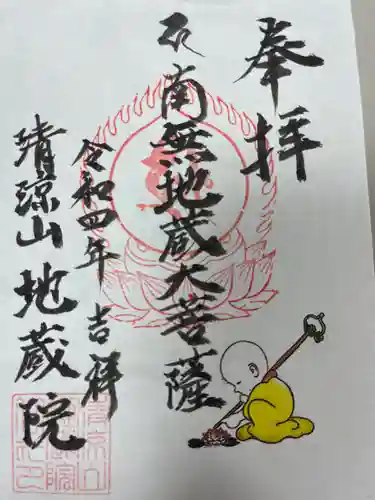 奉拝
南無地蔵大菩薩
令和四年 吉祥
清涼山 地蔵院